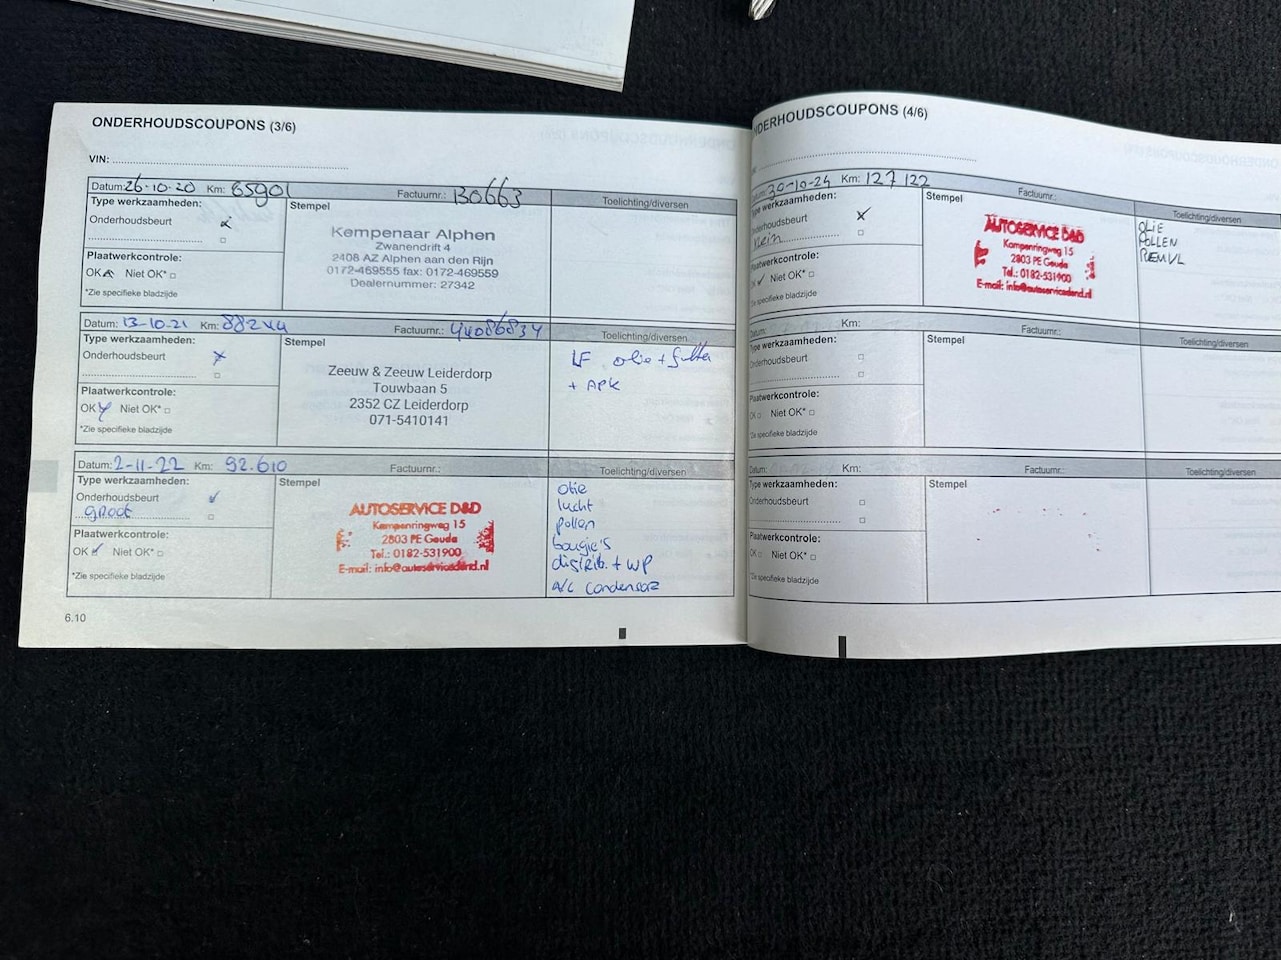 ONDERHOUDSCOUPONS (3/6)
VIN:
Datum: 26-10-20 Km: 85901 Factuurnr.: 130663
Type werkzaamheden:
Stempel
Toelichting/diversen
Onderhoudsbeurt
Kempenaar Alphen
Zwanendrift 4
2408 AZ Alphen aan den Rijn
0172-469555 fax: 0172-469559
Dealernummer: 27342
Plaatwerkcontrole:
OK Niet OK*
*Zie specifieke bladzijde
Datum: 13-10-21 Km: Factuurnr.: 44086834
Type werkzaamheden:
Stempel
Toelichting/diversen
Onderhoudsbeurt
Zeeuw & Zeeuw Leiderdorp
Touwbaan 5
2352 CZ Leiderdorp
071-5410141
LF olie + filter
+ APK
Plaatwerkcontrole:
OK Niet OK*
*Zie specifieke bladzijde
Datum: 2-11-22 Km: 92.610 Factuurnr.:
Type werkzaamheden:
Stempel
Toelichting/diversen
Onderhoudsbeurt
groot
AUTOSERVICE D&D
Kampenringweg 15
2803 PE Gouda
Tel.: 0182-531900
E-mail: info@autoservicedend.nl
olie
lucht
pollen
bougie's
distrib. + WP
A/C condensor
Plaatwerkcontrole:
OK Niet OK*
*Zie specifieke bladzijde
6.10
ONDERHOUDSCOUPONS (4/6)
Datum: 30-10-24 Km: 127122 Factuurnr.:
Type werkzaamheden:
Stempel
Toelichting/diversen
Onderhoudsbeurt
klein
AUTOSERVICE D&D
Kampenringweg 15
2803 PE Gouda
Tel.: 0182-531900
E-mail: info@autoservicedend.nl
OLIE
POLLEN
REMVL
Plaatwerkcontrole:
OK Niet OK*
*Zie specifieke bladzijde
Datum: Km: Factuurnr.:
Type werkzaamheden:
Stempel
Toelichting/diversen
Onderhoudsbeurt
Plaatwerkcontrole:
OK Niet OK*
*Zie specifieke bladzijde
Datum: Km: Factuurnr.:
Type werkzaamheden:
Stempel
Toelichting/diversen
Onderhoudsbeurt
Plaatwerkcontrole:
OK Niet OK*
*Zie specifieke bladzijde